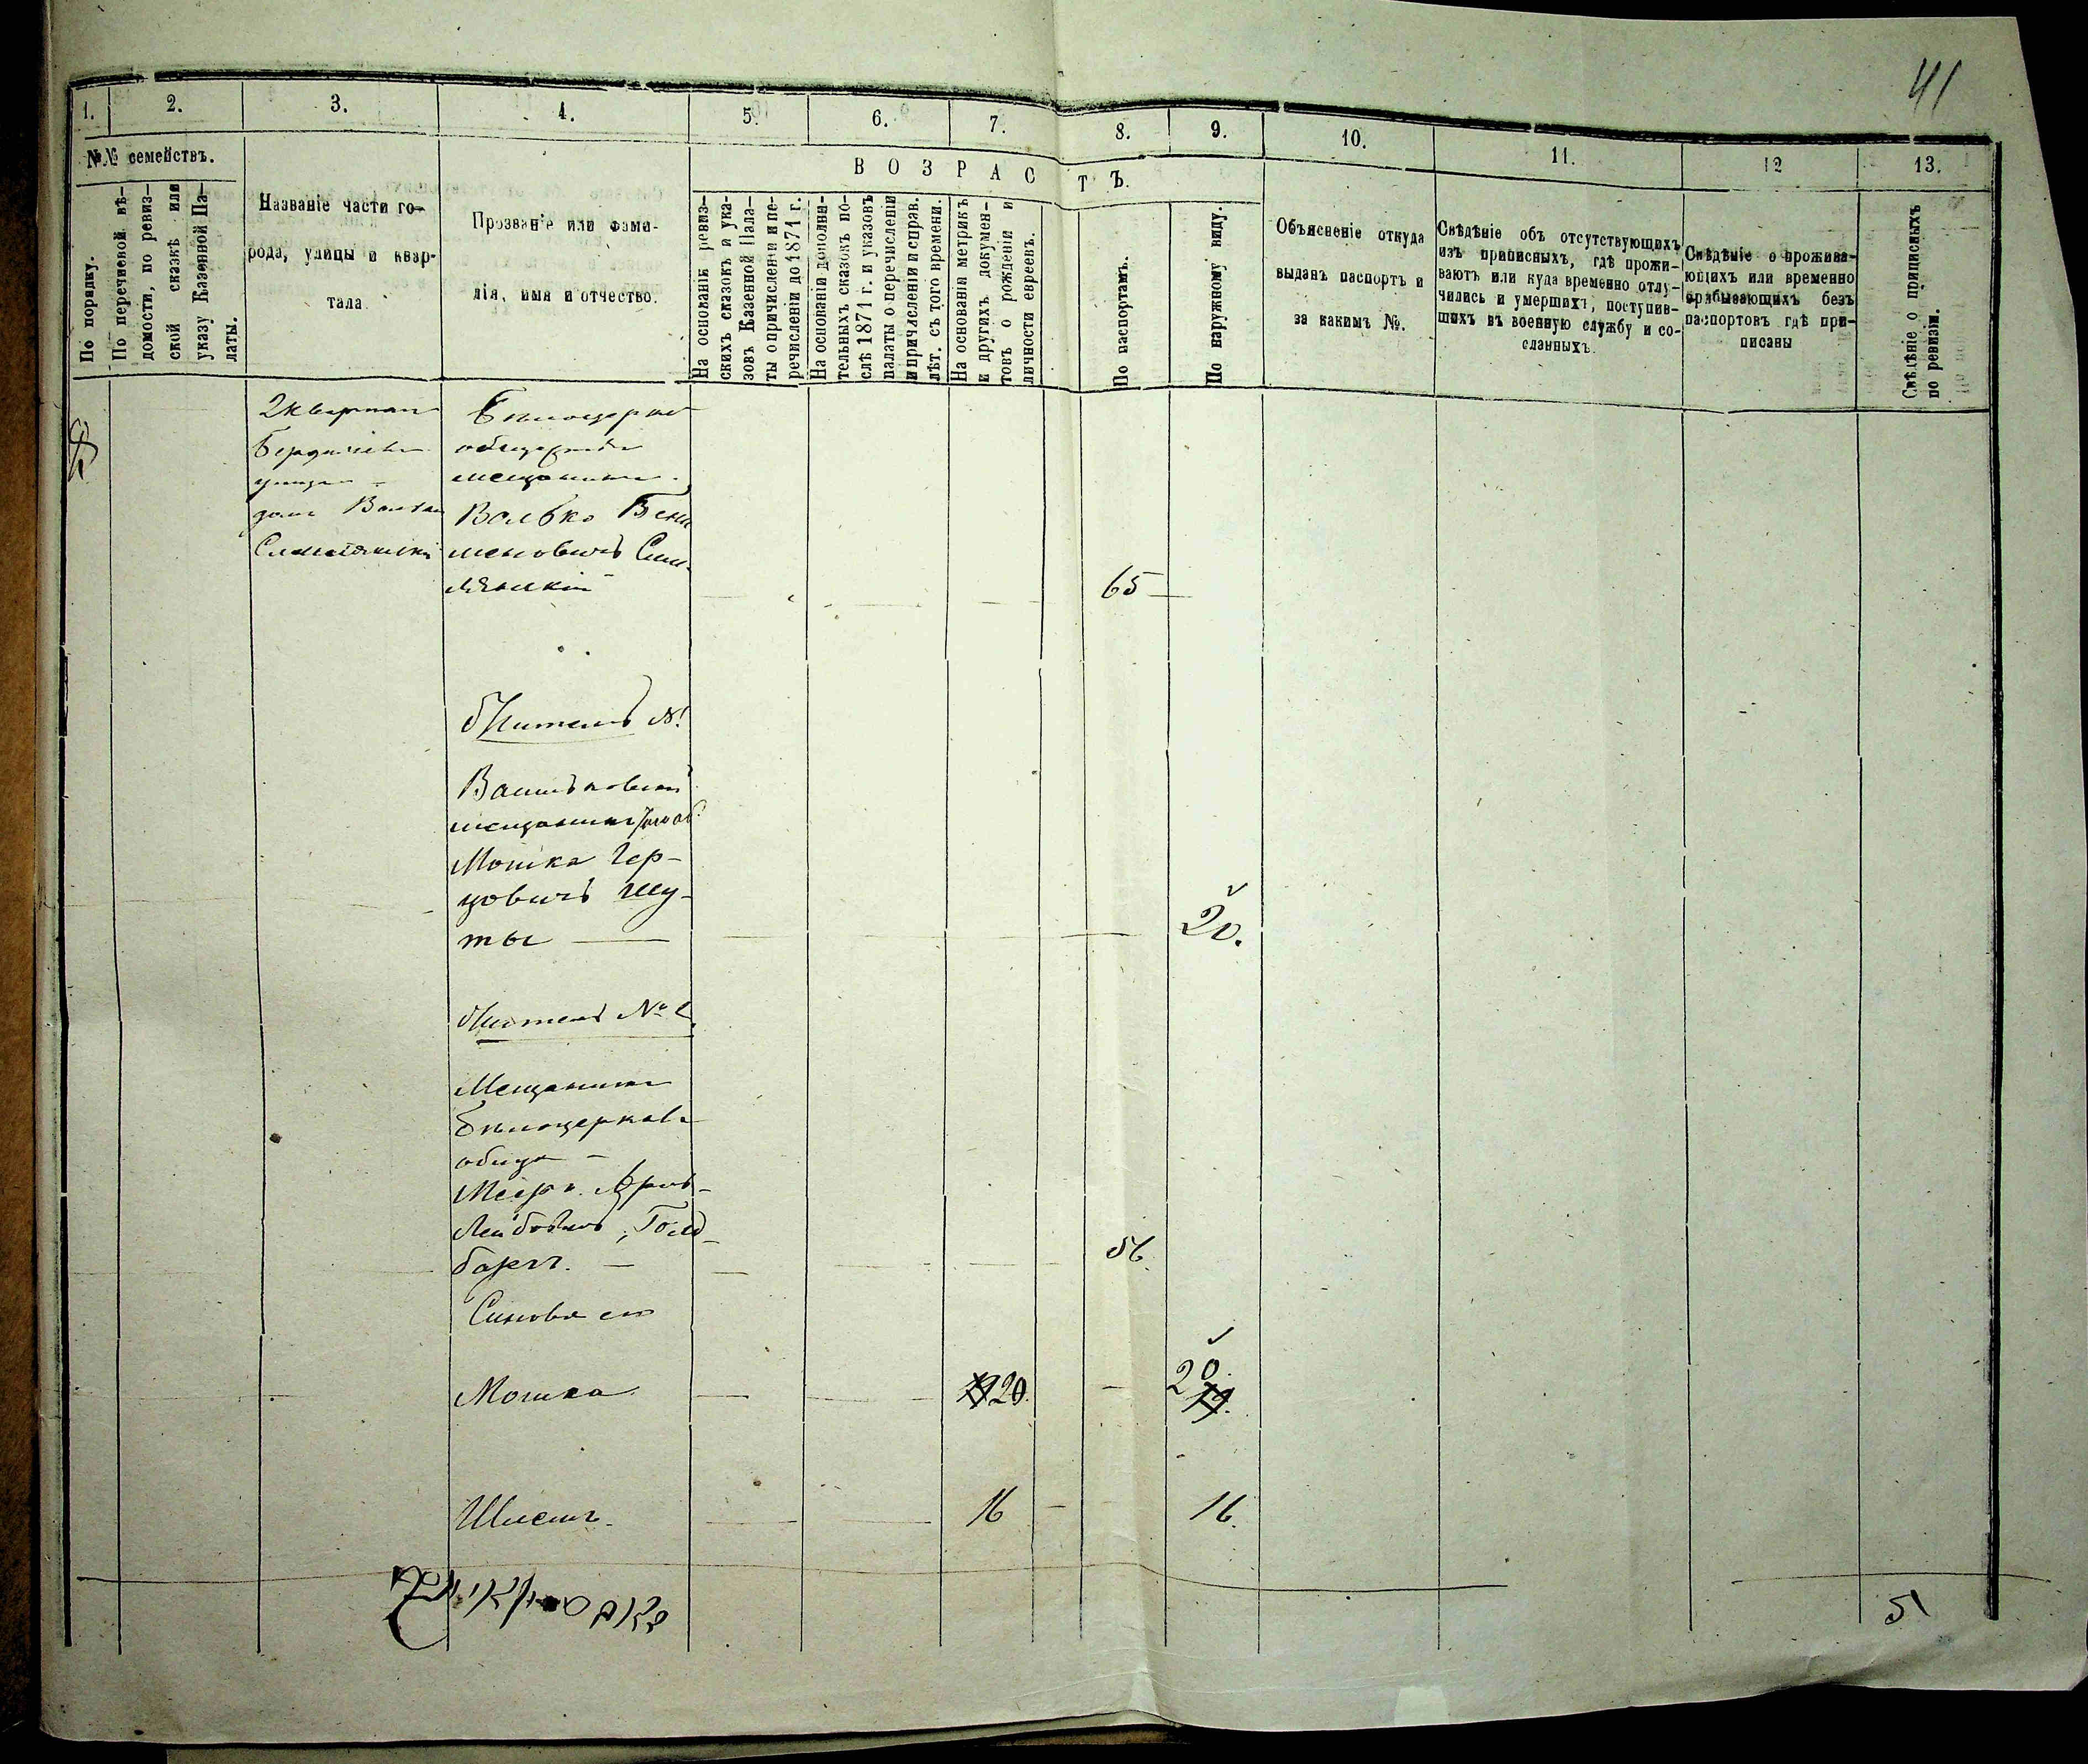 41
1. 2. 3. 4. 5. 6. 7. 8. 9. 10. 11. 12 13.
№№ семействъ.
По порядку.
По перечневой вѣ-
домости, по ревиз-
ской сказкѣ или
указу Казенной Па-
латы.
Названіе части го-
рода, улицы и квар-
тала.
Прозваніе или фами-
лія, имя и отчество.
ВОЗРАСТЪ.
На основаніи ревиз-
скихъ сказокъ и ука-
зовъ Казенной Пала-
ты о причисленіи и пе-
речисленіи до 1871 г.
На основаніи дополни-
тельныхъ сказокъ по-
слѣ 1871 г. и указовъ
палаты о перечисленіи
и причисленіи и справ.
лѣт. съ того времени.
На основаніи метрикъ
и другихъ докумен-
товъ о рожденіи и
личности евреевъ.
По паспортамъ.
По наружному виду.
Объясненіе откуда
выданъ паспортъ и
за какимъ №.
Свѣдѣніе объ отсутствующихъ
изъ приписныхъ, гдѣ прожи-
ваютъ или куда временно отлу-
чились и умершихъ, поступив-
шихъ въ военную службу и со-
сланныхъ.
Свѣдѣніе о прожива-
ющихъ или временно
прибывающихъ безъ
паспортовъ гдѣ при-
писаны
Свѣдѣніе о приписныхъ
по ревизіи.
2 квартал
Бердичевск
улица
домъ
Бѣлоцерков
общества
мещанинъ
Волько Бени
меновичъ Сми
лянскій
65
Житель №1
Васильковскій
мещанинъ
Мошка Гер-
цовичъ Шу-
ты
20.
Житель № 2
Мещанинъ
Бѣлоцерковск
общ
Мееръ Аронъ
Лейбовичъ Голд-
бергъ.
56.
Сыновья его
Мошка 20. 20. 19.
Шлема 16 16.
51